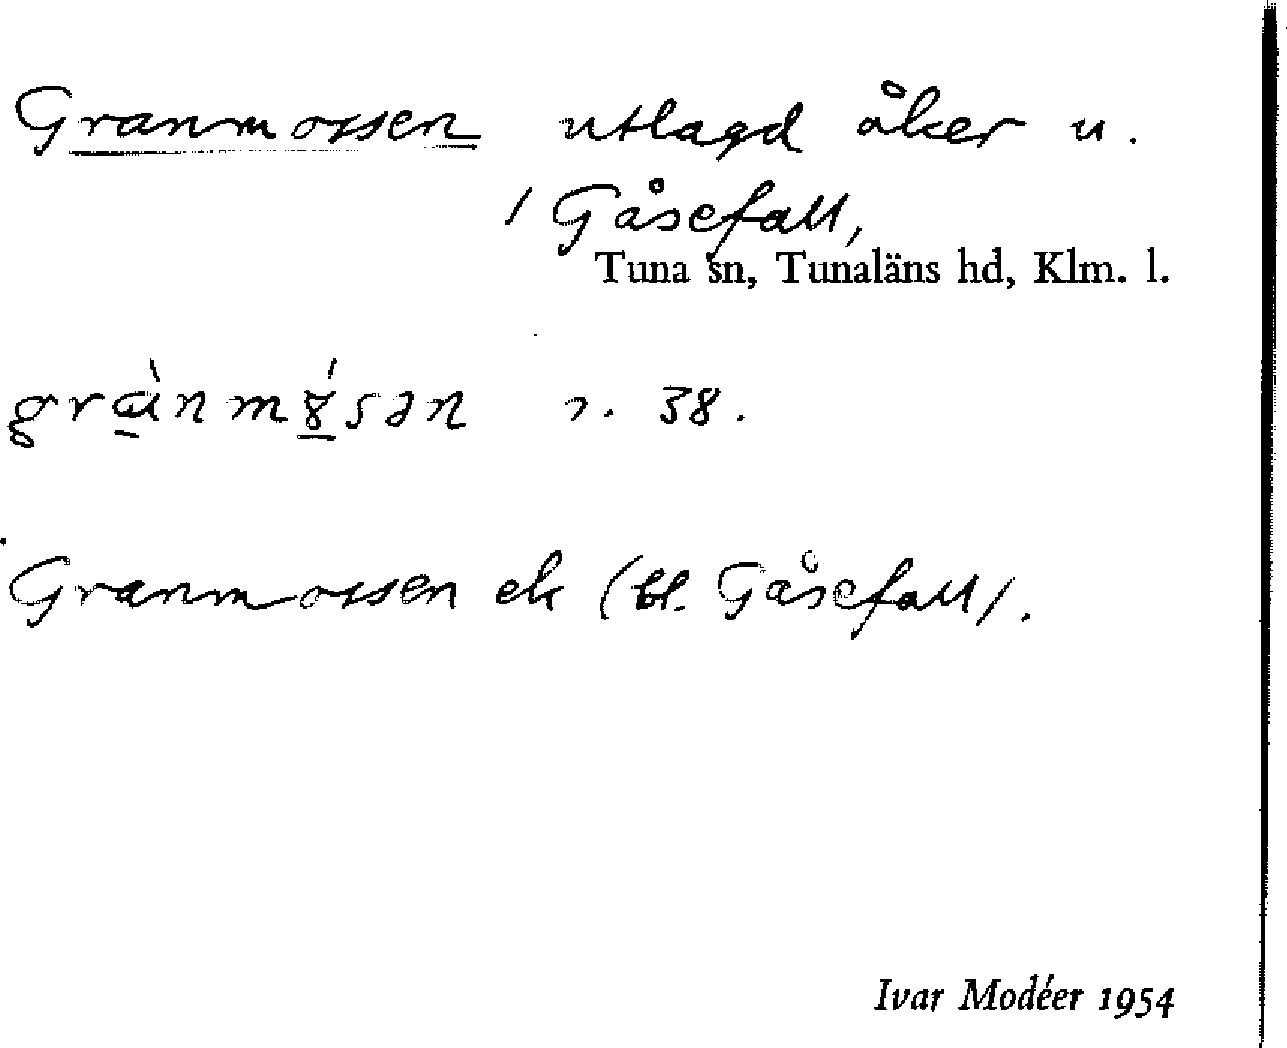 Granmossen utlagd åker u.
/ Gåsefall,
Tuna sn, Tunaläns hd, Klm. l.
grànmɤ́sən r. 38.
Granmossen ek (bl. Gåsefall).
Ivar Modéer 1954